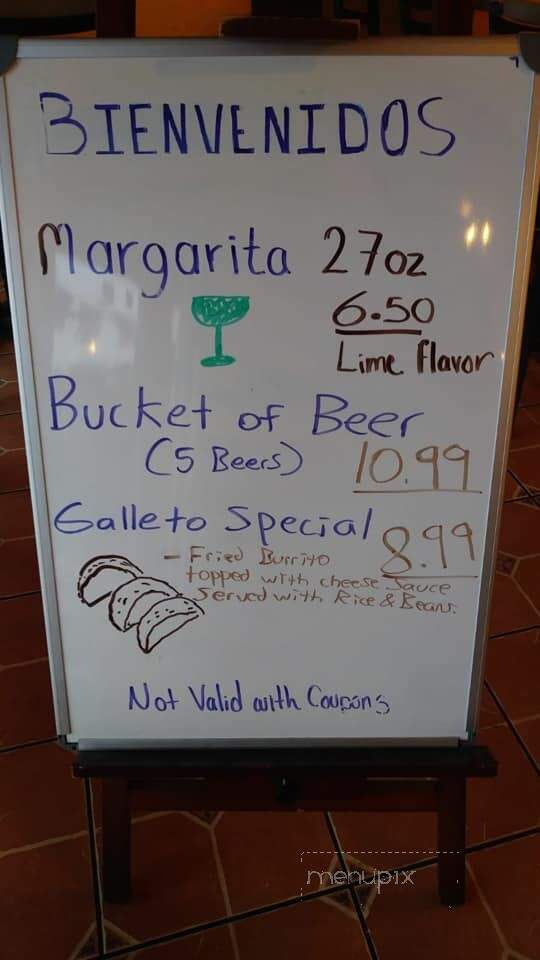 BIENVENIDOS
Margarita 27oz
6.50
Lime Flavor
Bucket of Beer
(5 Beers) 10.99
Galleto Special 8.99
- Fried Burrito
topped with cheese Sauce
Served with Rice & Beans.
Not Valid with Coupons
menupix